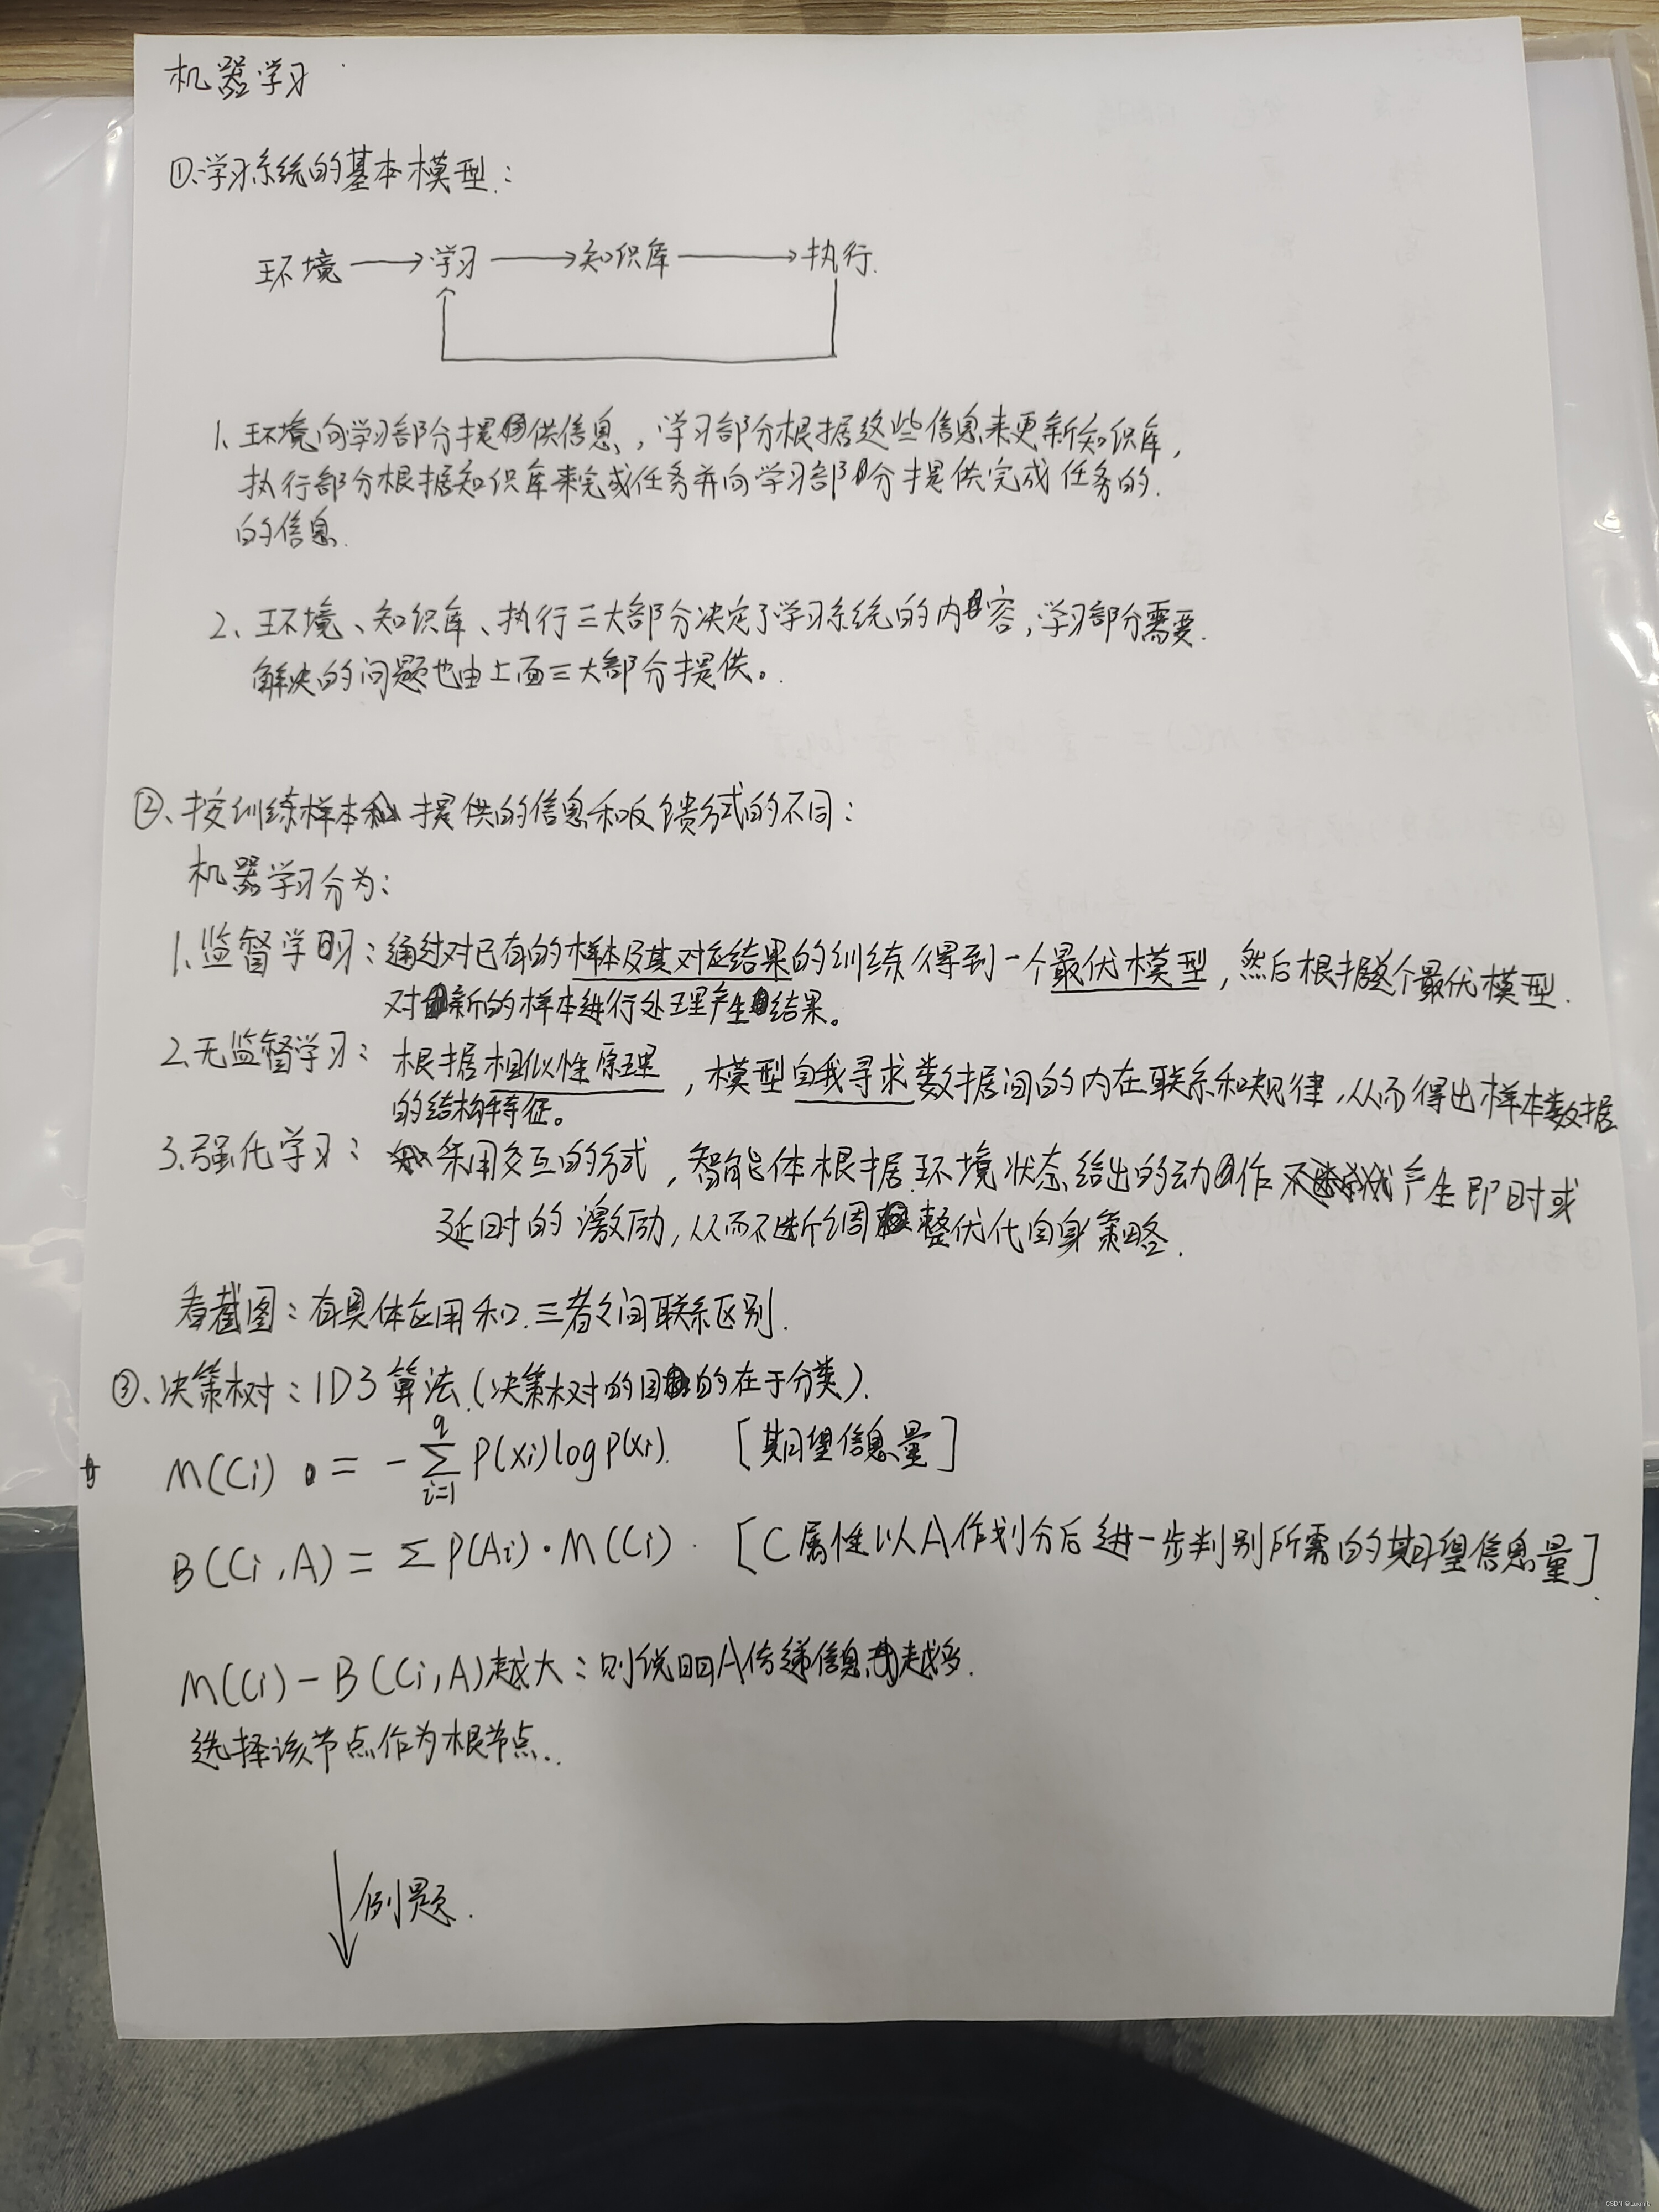 机器学习
①.学习系统的基本模型:
环境 → 学习 → 知识库 → 执行.
1、环境向学习部分提供信息,学习部分根据这些信息来更新知识库,
执行部分根据知识库来完成任务并向学习部分提供完成任务的.
的信息.
2、环境、知识库、执行三大部分决定了学习系统的内容,学习部分需要.
解决的问题也由上面三大部分提供。.
②、按训练样本提供的信息和反馈方式的不同:
机器学习分为:
1.监督学习:通过对已有的样本及其对应结果的训练得到一个最优模型,然后根据这个最优模型.
对新的样本进行处理产生结果。
2.无监督学习:根据相似性原理,模型自我寻求数据间的内在联系和规律,从而得出样本数据
的结构特征。
3.强化学习:采用交互的方式,智能体根据环境状态给出的动作产生即时或
延时的激励,从而不断调整优化自身策略.
看截图:有具体应用和.三者之间联系区别.
③、决策树:ID3算法.(决策树的目的在于分类).
M(Ci) = -∑_{i=1}^{q} P(xi)logP(xi). [期望信息量]
B(Ci,A) = ∑P(Ai)·M(Ci). [C属性以A作划分后进一步判别所需的期望信息量].
M(Ci)-B(Ci,A)越大:则说明A传递信息越多.
选择该节点作为根节点..
↓例题.
CSDN